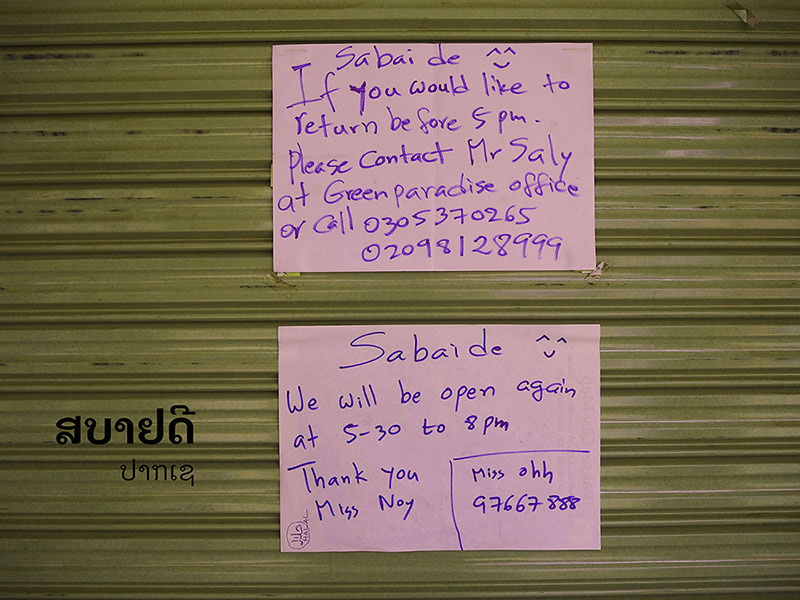 Sabai de ^^
If you would like to
return before 5 pm.
please contact Mr Saly
at Greenparadise office
or call 0305370265
02098128999
Sabai de ^^
We will be open again
at 5-30 to 8 pm
Thank you
Miss Noy
Miss ohh
97667888
HALAL
ສບາຢດີ
ປາກເຊ